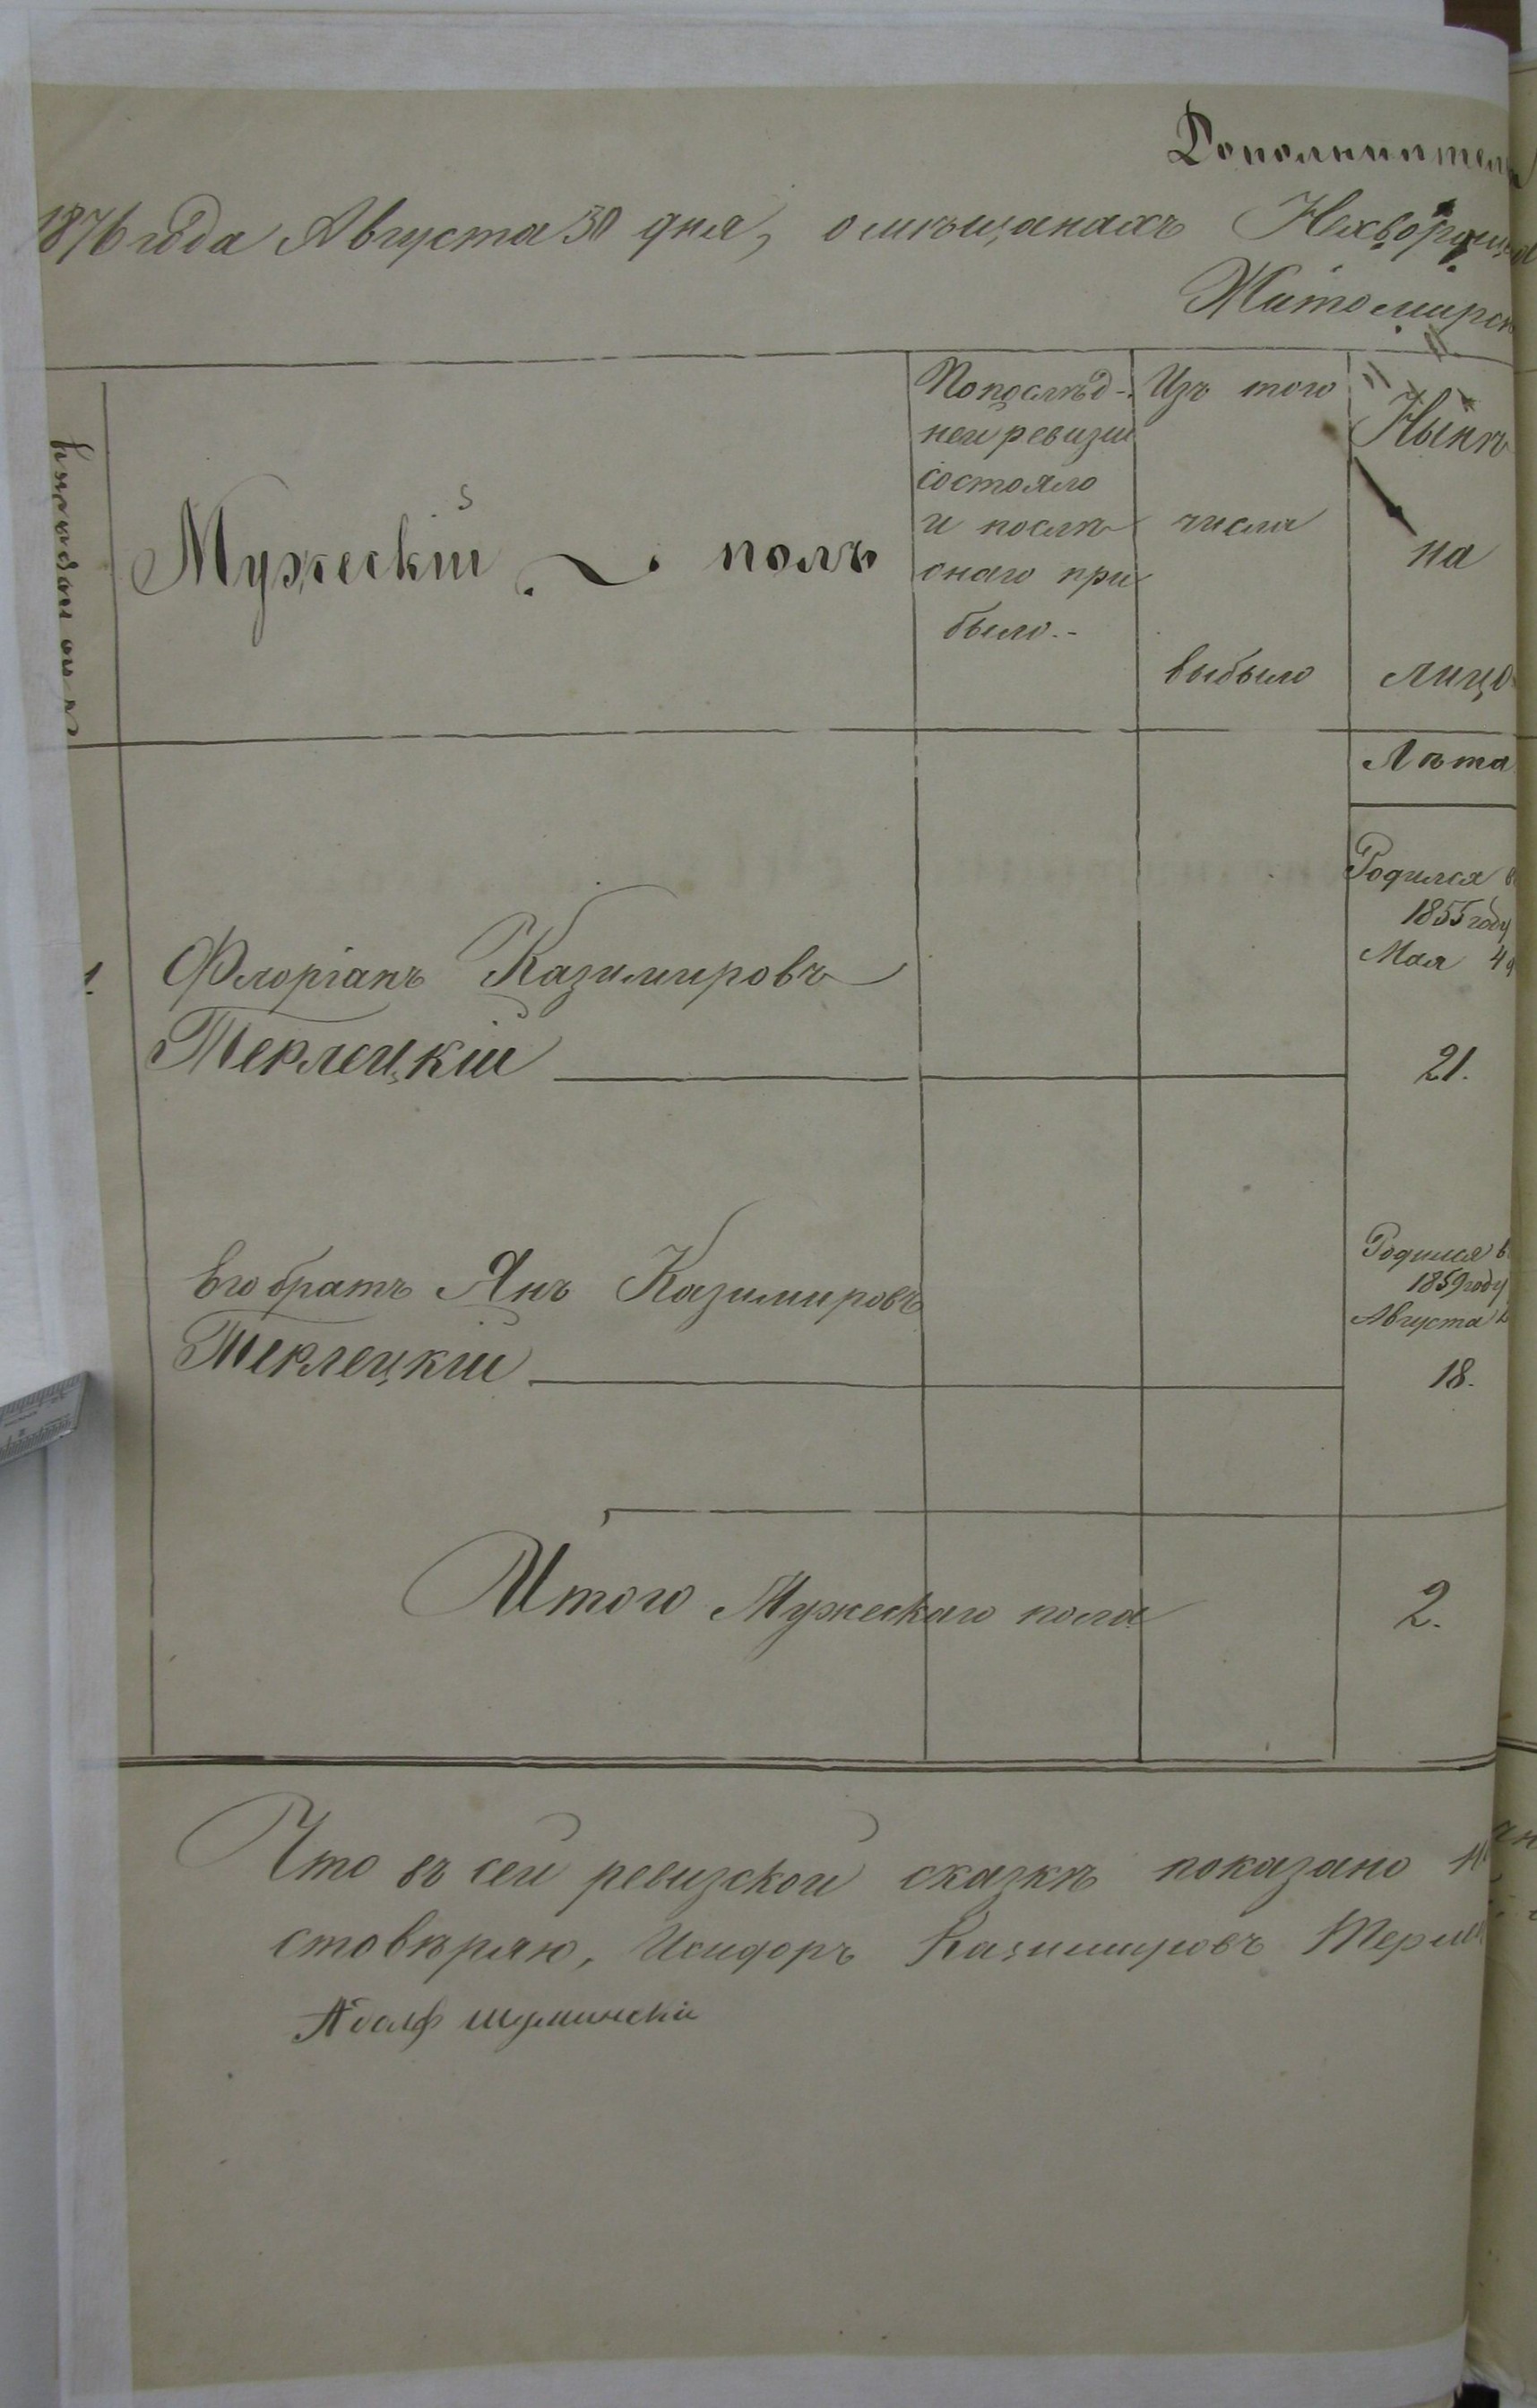 Дополнител
1876 года Августа 30 дня, о мѣщанахъ Нехворощ
Житомирск
№ по порядку
Мужескій полъ
Попослѣд-
ней ревизіи
состояло
и послѣ
онаго при
было.-
Изъ того
числа
выбыло
Нынѣ
на
лицо
Лѣта
Родился в
1855 году
Мая 4
1.
Флоріанъ Казимировъ
Терлецкій
21.
Родился в
1859 году
Августа
Его братъ Янъ Казимировъ
Терлецкій
18.
Итого Мужескаго пола
2.
Что въ сей ревизской сказкѣ показано
стовѣряю, Исидоръ Казимировъ Терле
Адолф Шуминскій